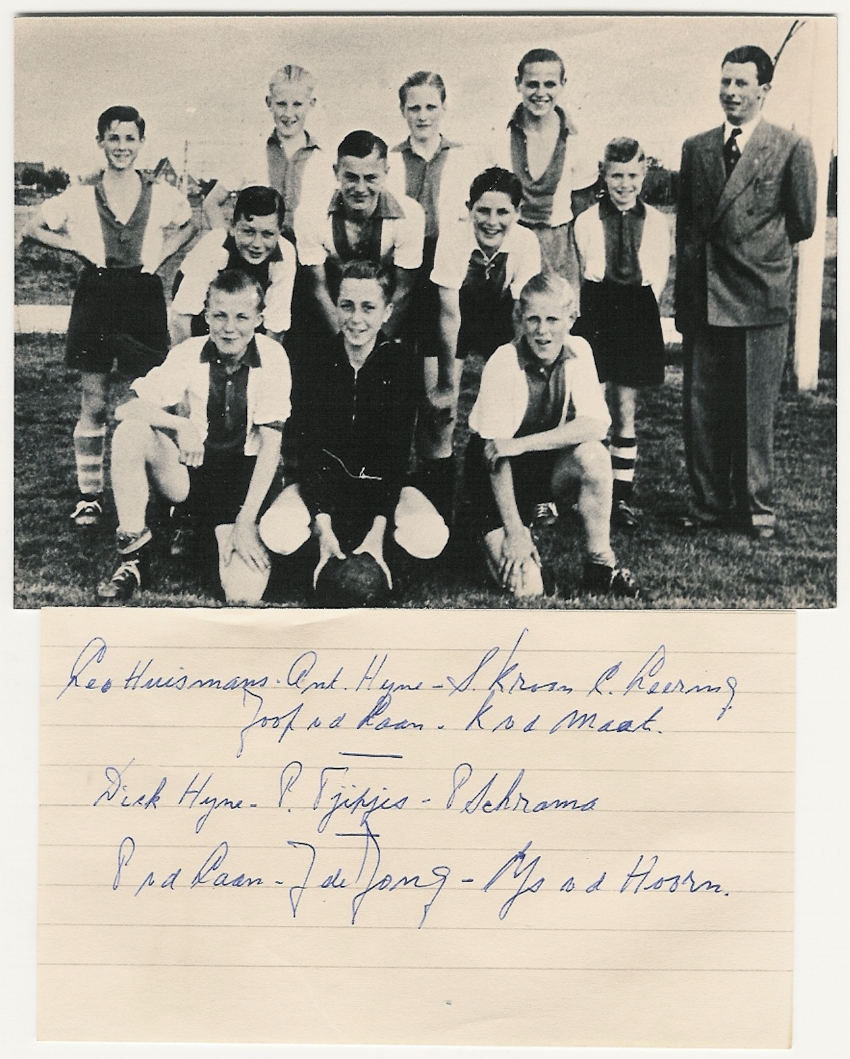 Leo Huismans - Ant. Hyne - S. Kroon C. Leering
Joop v d Laan - K v d Maat.
Dick Hyne - P. Tjipjes - P Schrama
P v d Laan - J de Jong - Ys v d Hoorn.